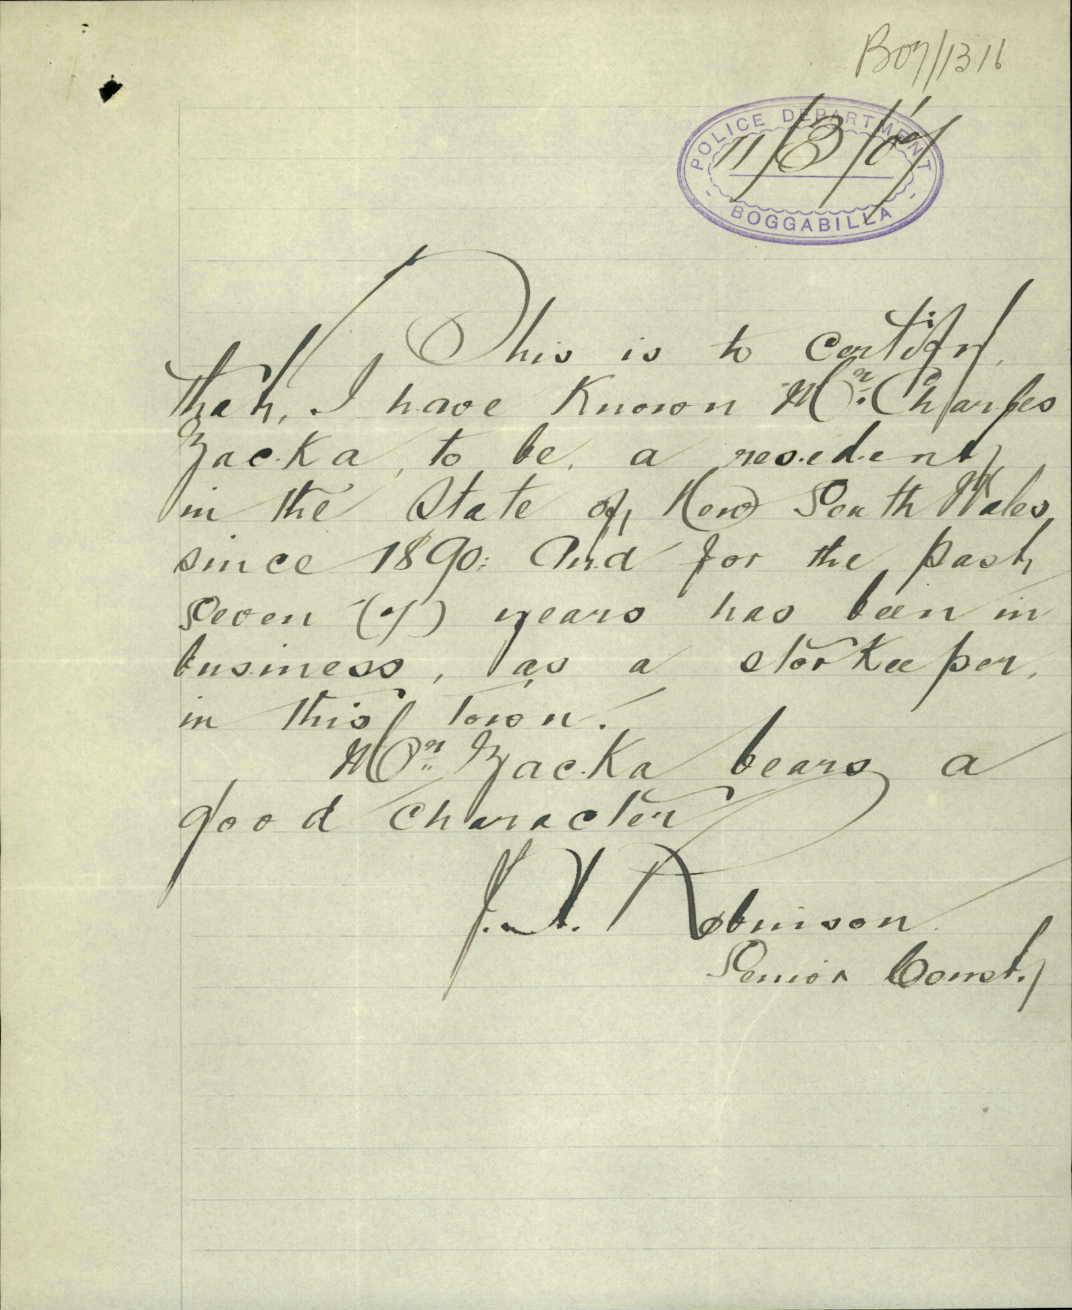 B07/1316
POLICE DEPARTMENT
11/3/07
BOGGABILLA
This is to certify
that, I have Known Mr. Charles
Zacka, to be, a resident
in the State of New South Wales
since 1890: And for the past
Seven (7) years has been in
business, as a storKeeper,
in this town.
Mr. Zacka bears a
good character
Robinson
Senior Const.